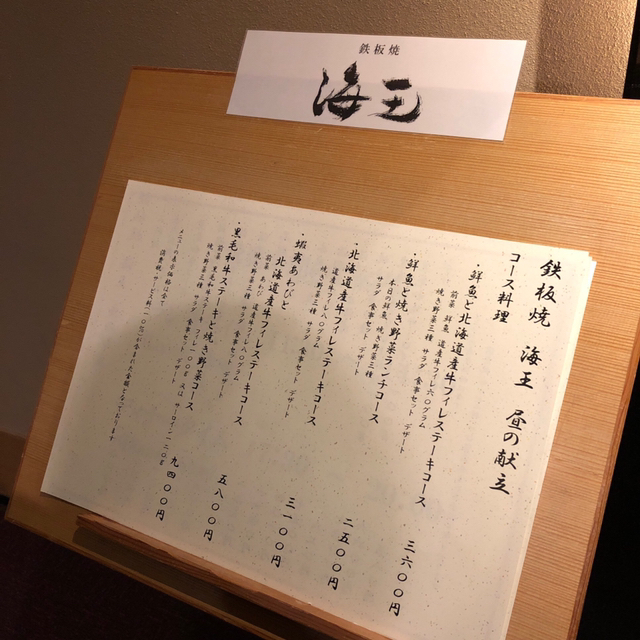 鉄板焼
海王
鉄板焼 海王 昼の献立
コース料理
・鮮魚と北海道産牛フィレステーキコース 三六〇〇円
前菜 鮮魚 道産牛フィレ六〇グラム
焼き野菜三種 サラダ 食事セット デザート
・鮮魚と焼き野菜ランチコース 二五〇〇円
本日の鮮魚 焼き野菜三種
サラダ 食事セット デザート
・北海道産牛フィレステーキコース 三一〇〇円
道産牛フィレ八〇グラム
焼き野菜三種 サラダ 食事セット デザート
・蝦夷あわびと
北海道産牛フィレステーキコース 五八〇〇円
前菜 あわび 道産牛フィレ八〇グラム
焼き野菜三種 サラダ 食事セット デザート
・黒毛和牛ステーキと焼き野菜コース 九四〇〇円
前菜 黒毛和牛ステーキ フィレ一〇〇g又は サーロイン一二〇g
焼き野菜三種 サラダ 食事セット デザート
メニューの表示価格は全て
消費税・サービス料
が含まれた金額となっております